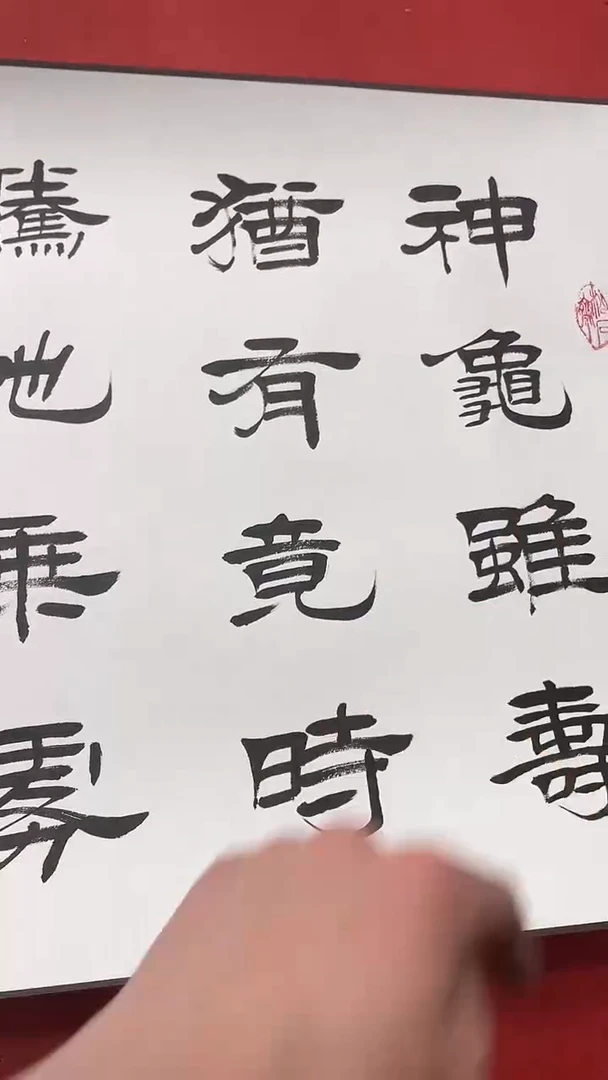 神龜雖壽
猶有竟時
騰虵乘霧